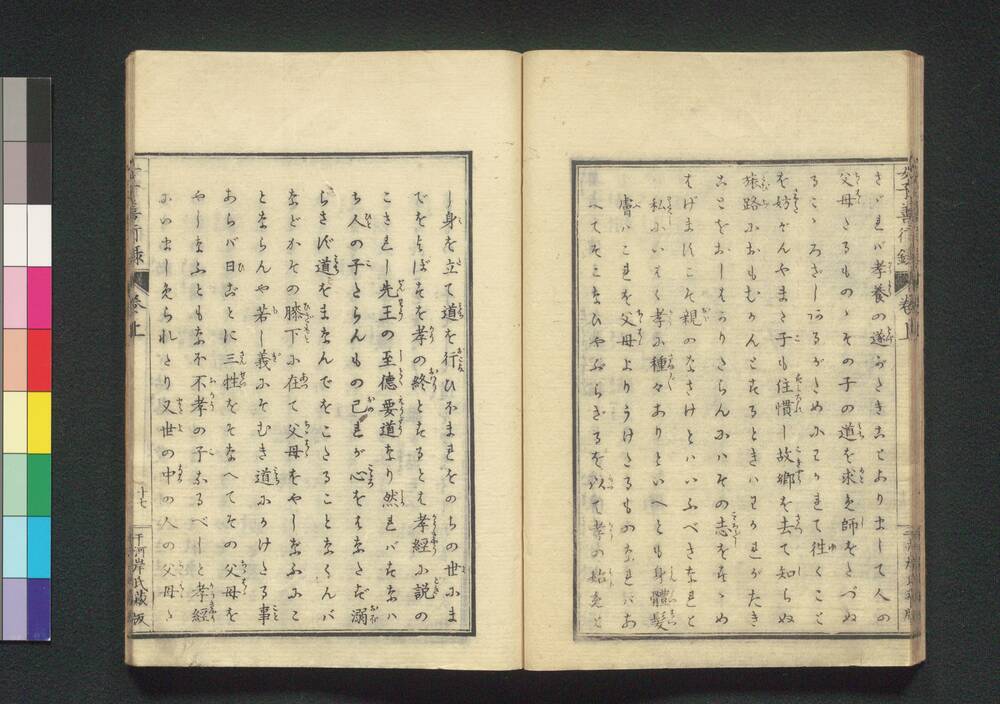 さゞれバ孝養の遂がたきことあり出して人の
父母たるものゝその子の道を求め師をたづぬ
るこゝろざしあるがためにわかれて往くこと
を妨ぎんやまた子も住慣し故郷を去て知らぬ
旅路におもむかんとするときハわかれがたき
ことをおしはかりたらんにハその志をすゝめ
はげますこそ親のなさけとハいふべきなれと
私にいはく孝に種々ありといへとも身體髮
膚ハこれを父母よりうけたるものなれバあ
へてそこなひやぶらざるを以て孝の始めと
し身を立て道を行ひほまれをのちの世にま
でをよぼすを孝の終とするとは孝經に説の
こされし先王の至德要道なり然れバすなハ
ち人の子たらんもの己れが心をほしさず溺
らさず道をまなんでをこたることなくんバ
などかその膝下に在て父母をやしなふにこ
とならんや若し義にそむき道にかけたる事
あらバ日ごとに三牲をそなへてその父母を
やしなふともなほ不孝の子なるべしと孝經
にいましめられたり又世の中の人の父母た
善行錄
卷上
十七
千河岸氏藏板